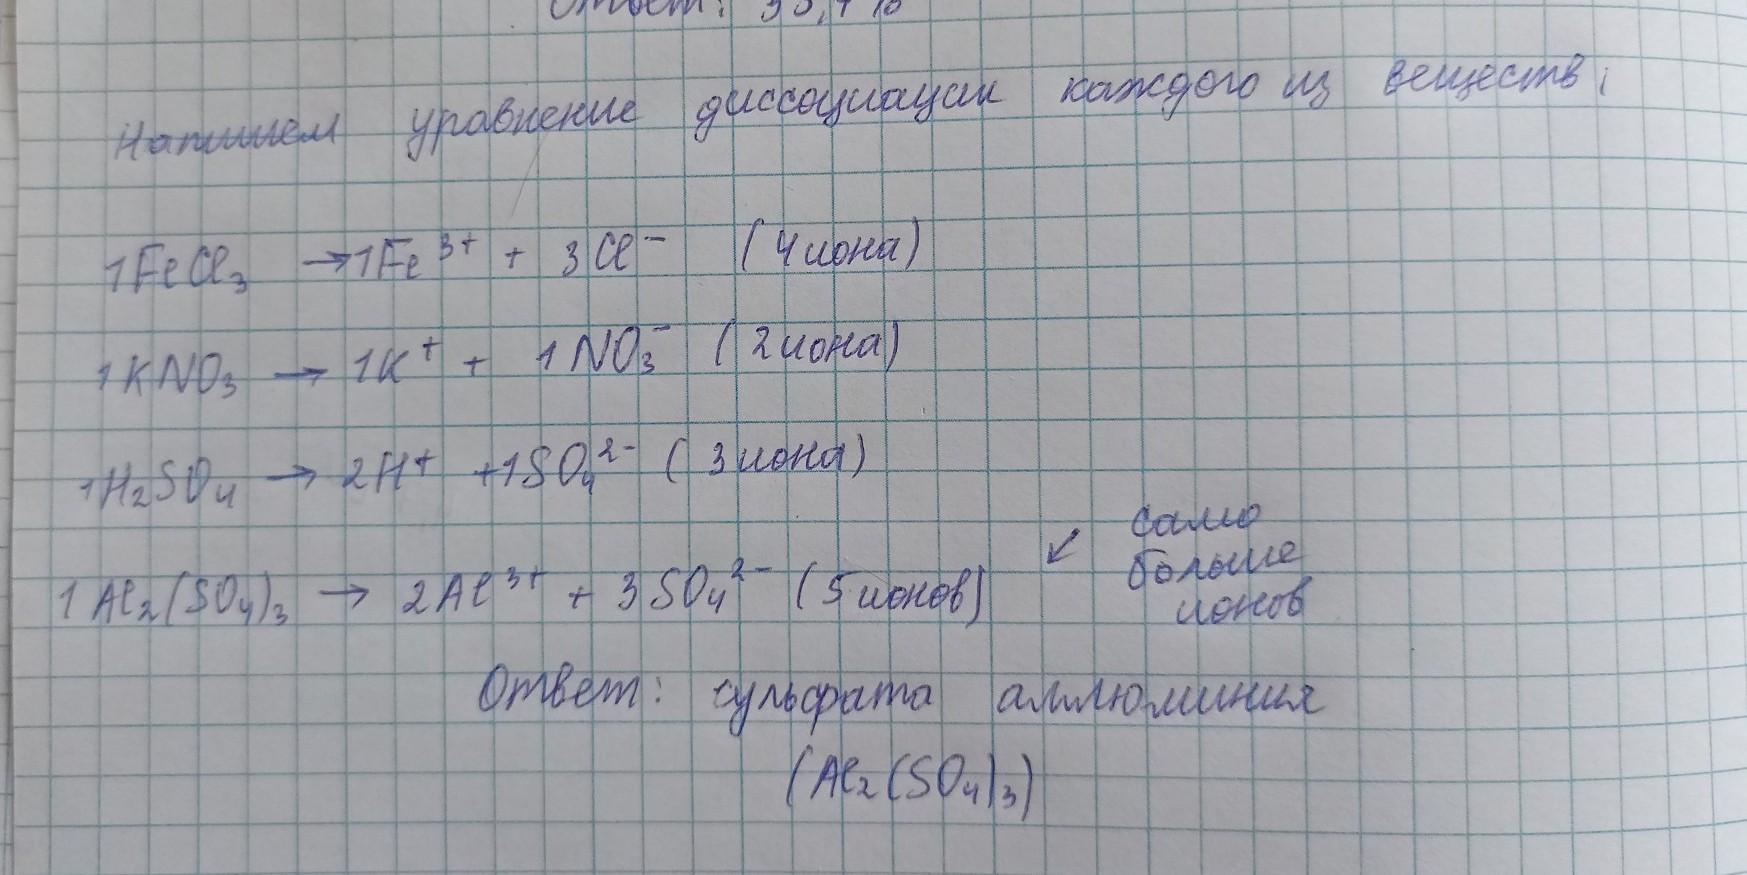 Ответ: 35,4 %
Напишем уравнение диссоциации каждого из веществ:
1FeCl₃ → 1Fe³⁺ + 3Cl⁻ (4 иона)
1KNO₃ → 1K⁺ + 1NO₃⁻ (2 иона)
1H₂SO₄ → 2H⁺ + 1SO₄²⁻ (3 иона)
1Al₂(SO₄)₃ → 2Al³⁺ + 3SO₄²⁻ (5 ионов) ↙ само
больше
ионов
Ответ: сульфата аллюминия
(Al₂(SO₄)₃)